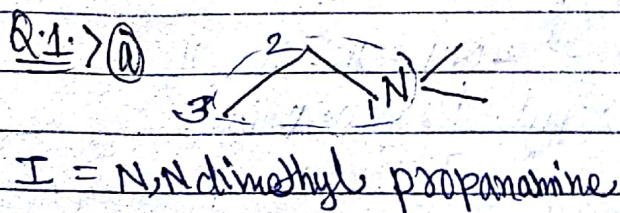 Q.1.> a
2
3 1 N
I = N,N dimethyl propanamine